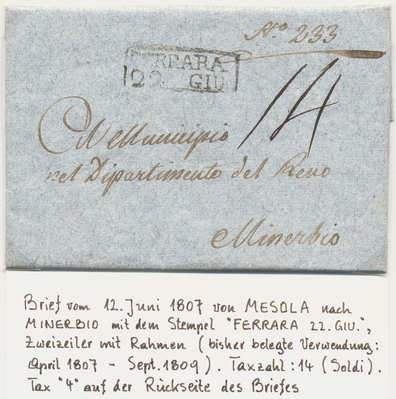 Nº 233
FERRARA
22. GIU
14
Al Municipio
nel Dipartimento del Reno
Minerbio
Brief vom 12. Juni 1807 von MESOLA nach
MINERBIO mit dem Stempel "FERRARA 22. GIU.",
Zweizeiler mit Rahmen (bisher belegte Verwendung:
April 1807 - Sept. 1809). Taxzahl: 14 (Soldi).
Tax "4" auf der Rückseite des Briefes